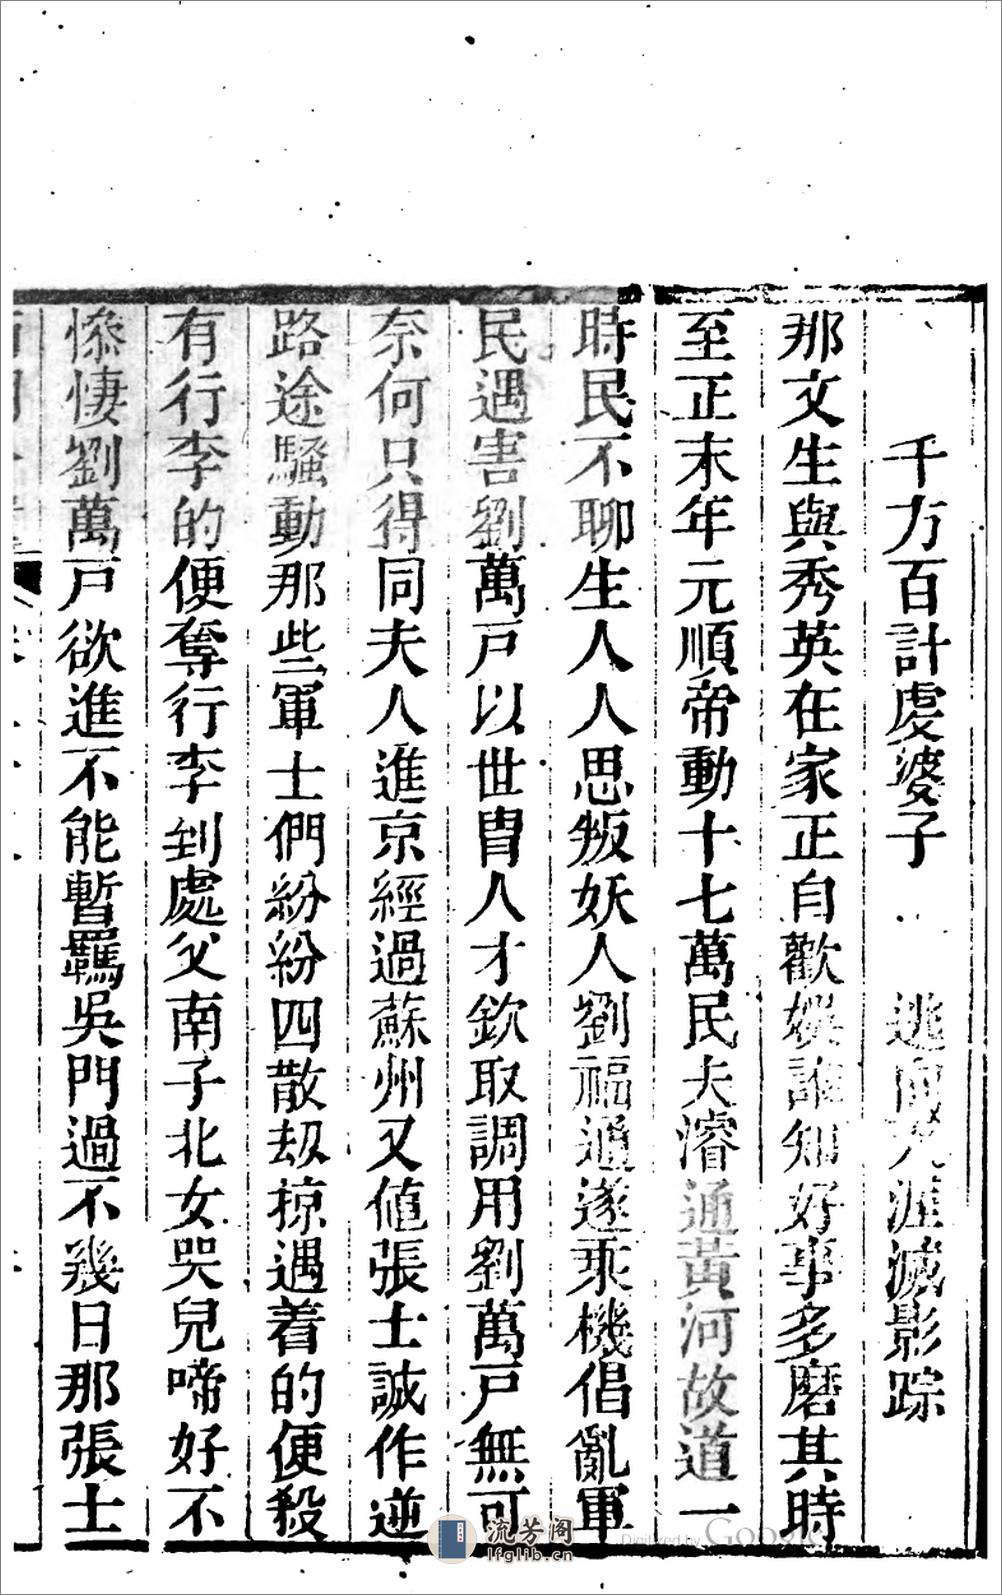 千方百計虔婆子 逃向天涯滅影踪
那文生與秀英在家正自歡娛誰知好事多磨其時
至正末年元順帝動十七萬民夫濬通黃河故道一
時民不聊生人人思叛妖人劉福通遂乘機倡亂軍
民遇害劉萬戸以世胄人才欽取調用劉萬戸無可
奈何只得同夫人進京經過蘇州又値張士誠作逆
路途騷動那些軍士們紛紛四散刼掠遇着的便殺
有行李的便奪行李到處父南子北女哭兒啼好不
慘悽劉萬戸欲進不能暫羈吳門過不幾日那張士
流芳阁
lfglib.cn
Digitized by Google